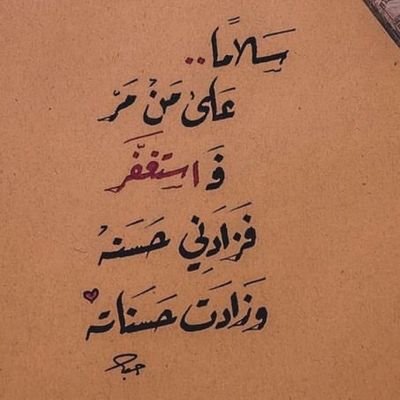 سَلامًا..
عَلىٰ مَنْ مَرّ
فَاستغفَّر
فَزَادَنِي حَسَنهْ
وَزَادَت حَسَنَاته